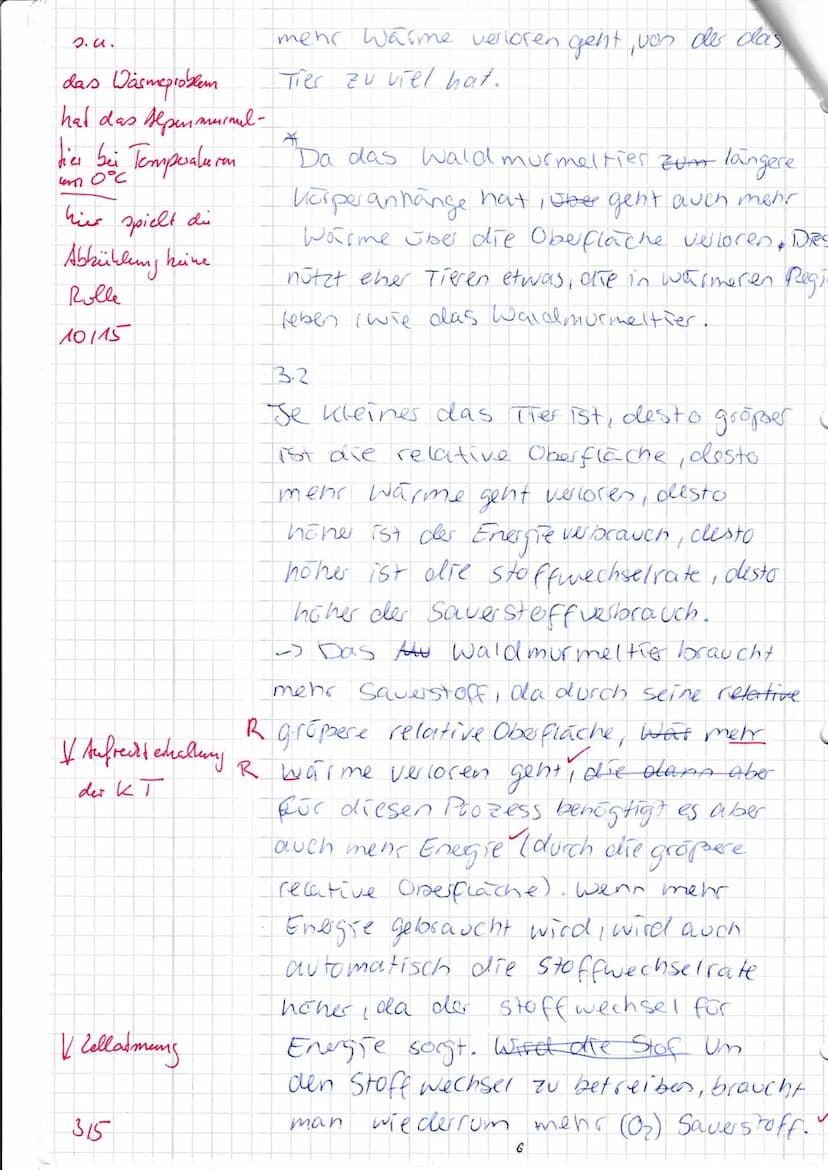 s.u.
das Wärmeproblem
hat das Alpenmurmel-
tier bei Temperaturen
um 0°C
hier spielt die
Abkühlung keine
Rolle
10/15
mehr Wärme verloren geht, von der das
Tier zu viel hat.
* Da das Waldmurmeltier zum längere
Körperanhänge hat, über geht auch mehr
Wärme über die Oberfläche verloren. Dies
nützt eher Tieren etwas, die in wärmeren Regi
leben, wie das Waldmurmeltier.
3.2
Je kleiner das Tier ist, desto größer
ist die relative Oberfläche, desto
mehr Wärme geht verloren, desto
höher ist der Energieverbrauch, desto
höher ist die Stoffwechselrate, desto
höher der Sauerstoffverbrauch.
-> Das Mu Waldmurmeltier braucht
mehr Sauerstoff, da durch seine relative
R größere relative Oberfläche, Wär mehr
V Aufrechterhaltung
der KT
R Wärme verloren geht, die dann aber
für diesen Prozess benögtigt es aber
auch mehr Energie (durch die größere
relative Oberfläche). Wenn mehr
Energie gebraucht wird, wird auch
automatisch die Stoffwechselrate
höher, da der Stoffwechsel für
V Zellatmung
Energie sorgt. Wird die Stof Um
den Stoffwechsel zu betreiben, braucht
3/5
man wiederrum mehr (O₂) Sauerstoff. ✓
6